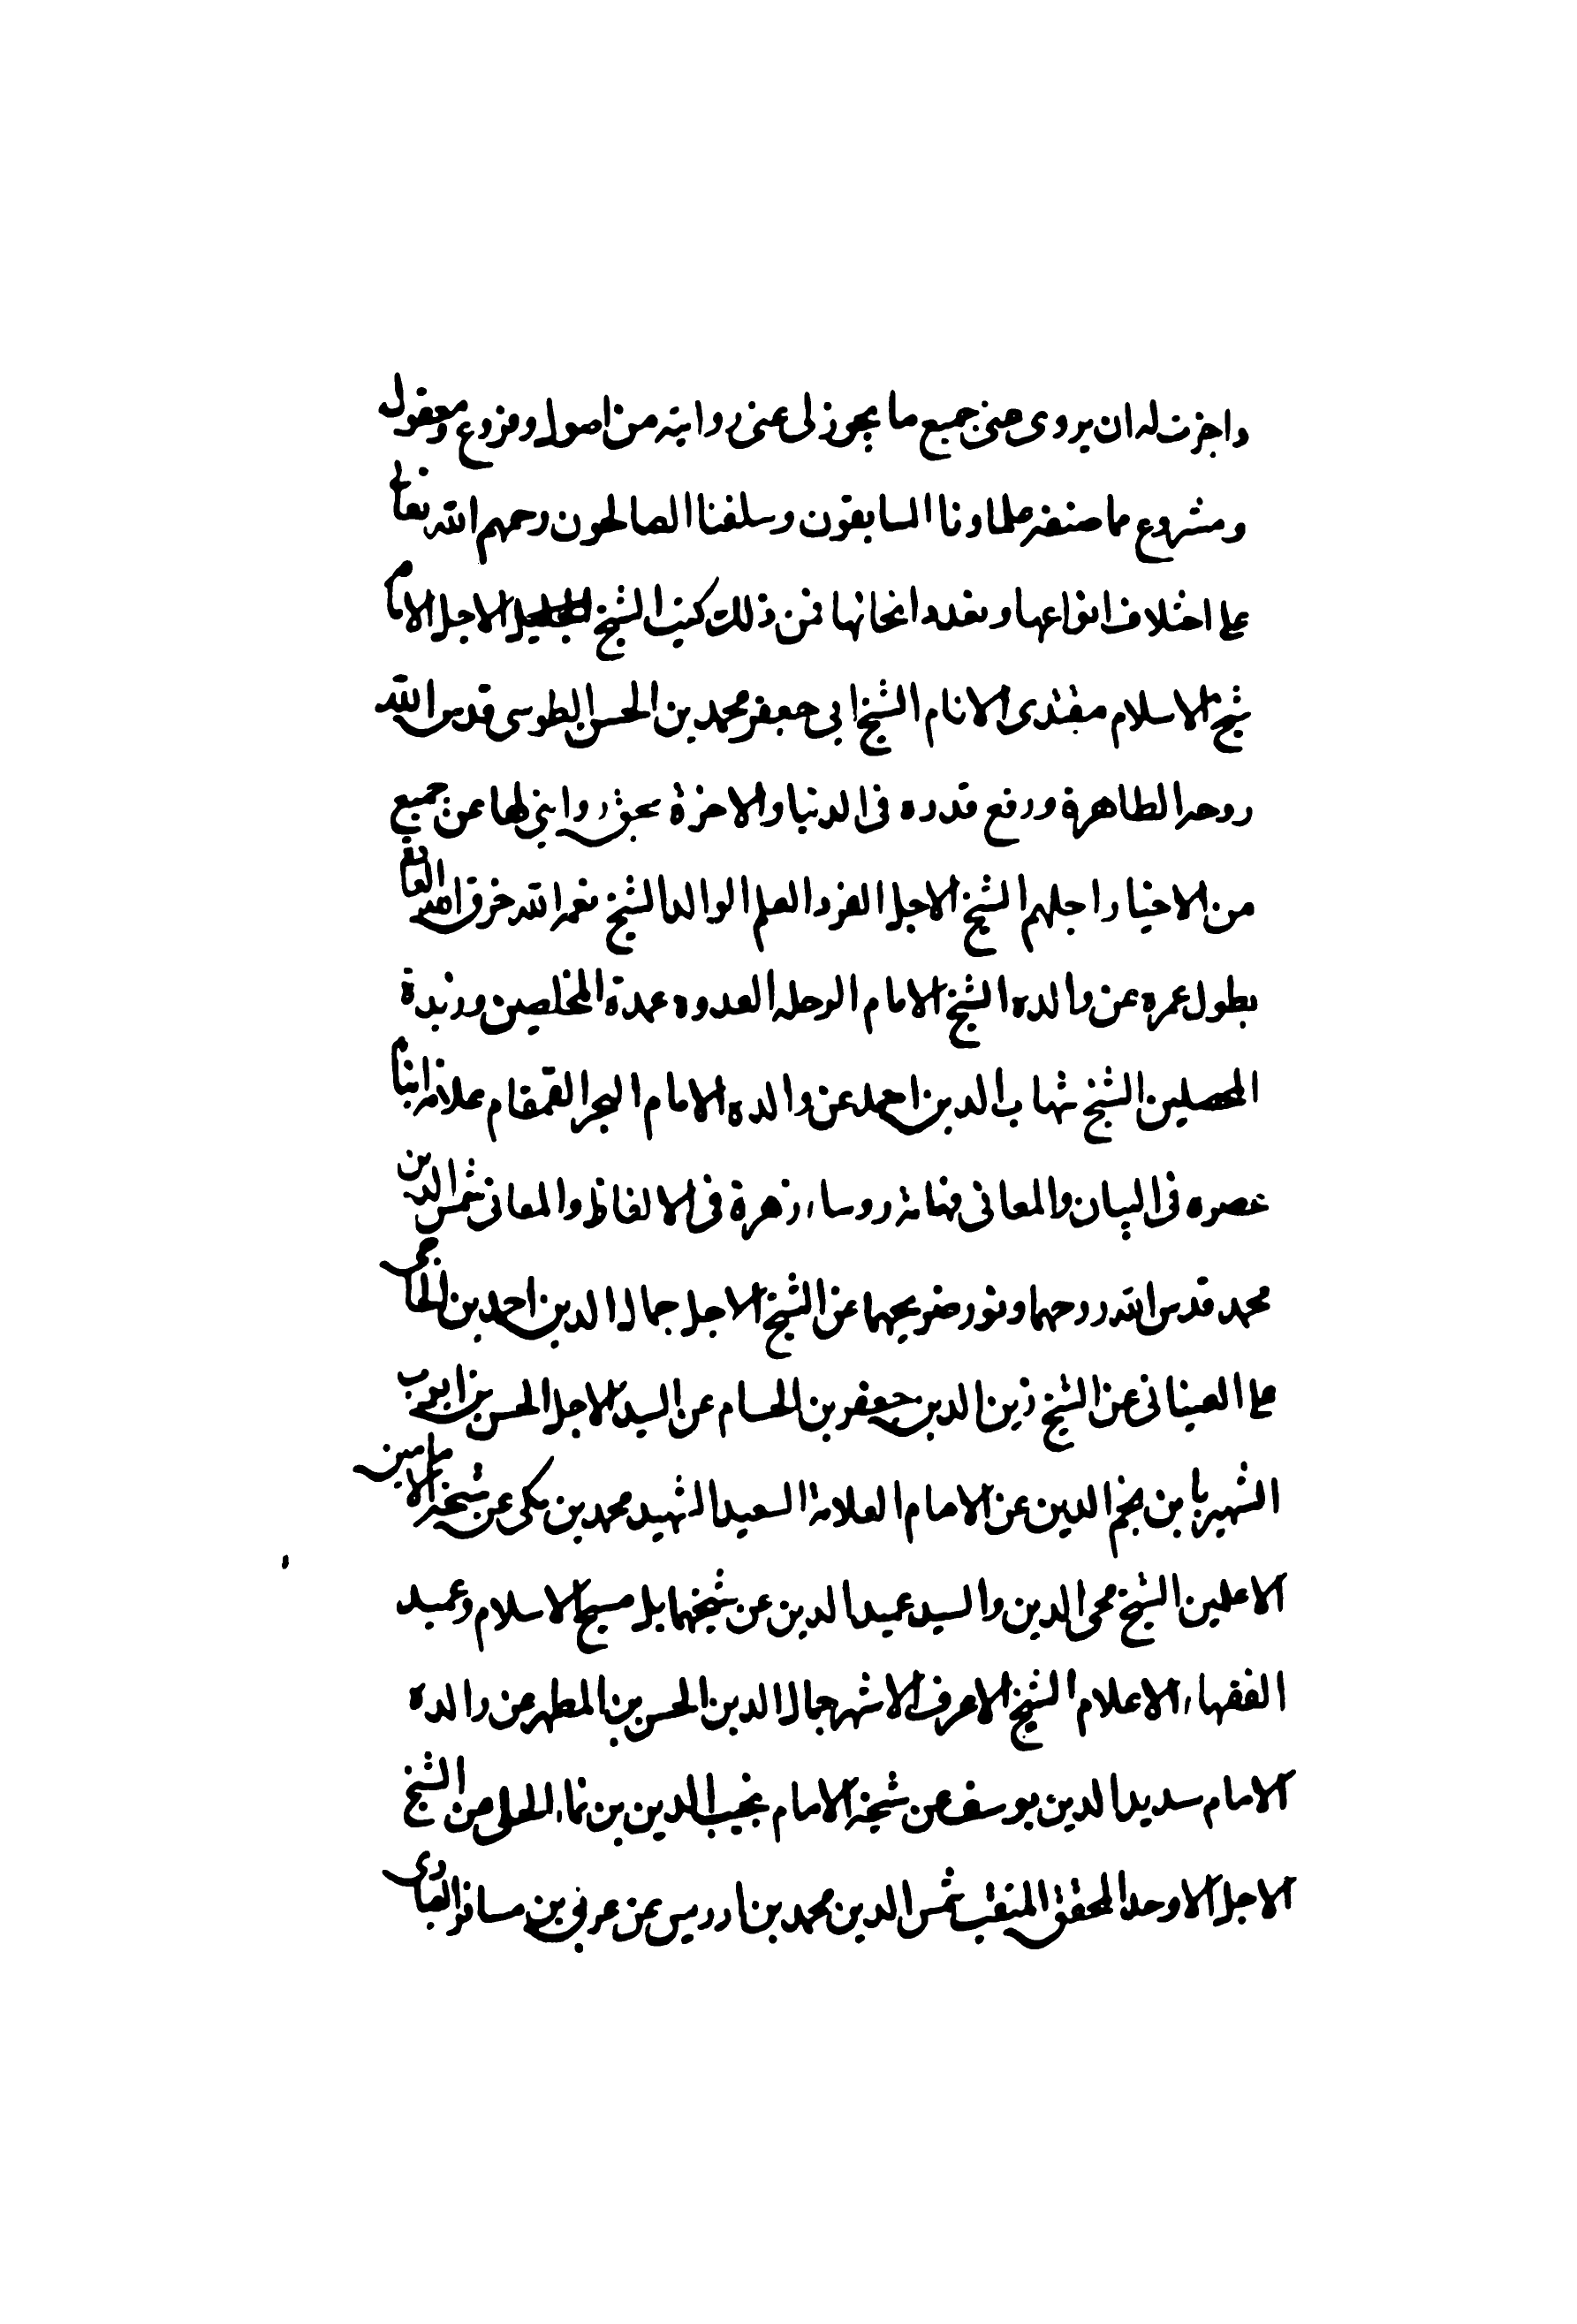 واجزت له ان يروى عنى جميع ما يجوز لى عنى روايته من اصول وفروع ومعقول
ومشروع مما صنفه علماونا السابقون وسلفنا الصالحون رحمهم الله تعالى
على اختلاف انواعها وتعدد انحائها فمن ذلك كتب الشيخ الاجل الامام
شيخ الاسلام مقتدى الانام الشيخ ابى جعفر محمد بن الحسن الطوسى قدس الله
روحه الطاهرة ورفع قدره فى الدنيا والاخرة بحق روايتى لها عن جميع
من الاخيار اجلهم الشيخ الاجل الفرد العلم الوالد الشيخ نعمة الله خرق الله العادة
بطول عمره عن والده الشيخ الامام الرحله القدوه عمدة المخلصين وزبدة
المحصلين الشيخ شهاب الدين احمد عن والده الامام البحر القمقام علامة ابناء
عصره فى البيان والمعانى فهامة روساء زهرة فى الالفاظ والمعانى شمس الدين
محمد قدس الله روحهما ونور ضريحهما عن الشيخ الاجل جمال الدين احمد بن الحاج
على العينانى عن الشيخ زين الدين جعفر بن الحسام عن السيد الاجل الحسن بن ايوب
الشهير بابن نجم الدين عن الامام العلامة السعيد الشهيد محمد بن مكى عن شيخيه الامامين
الاعلين الشيخ محى الدين والسيد عميد الدين عن شيخهما بل مسيح الاسلام وعميد
الفقهاء الاعلام الشيخ الاعرف الاشهر جمال الدين الحسن بن المطهر عن والده
الامام سديد الدين يوسف عن شيخه الامام نجيب الدين بن نماء الحلى عن الشيخ
الاجل الاوحد المحقق المنقب شمس الدين محمد بن ادريس عن عربى بن مسافر العبادى